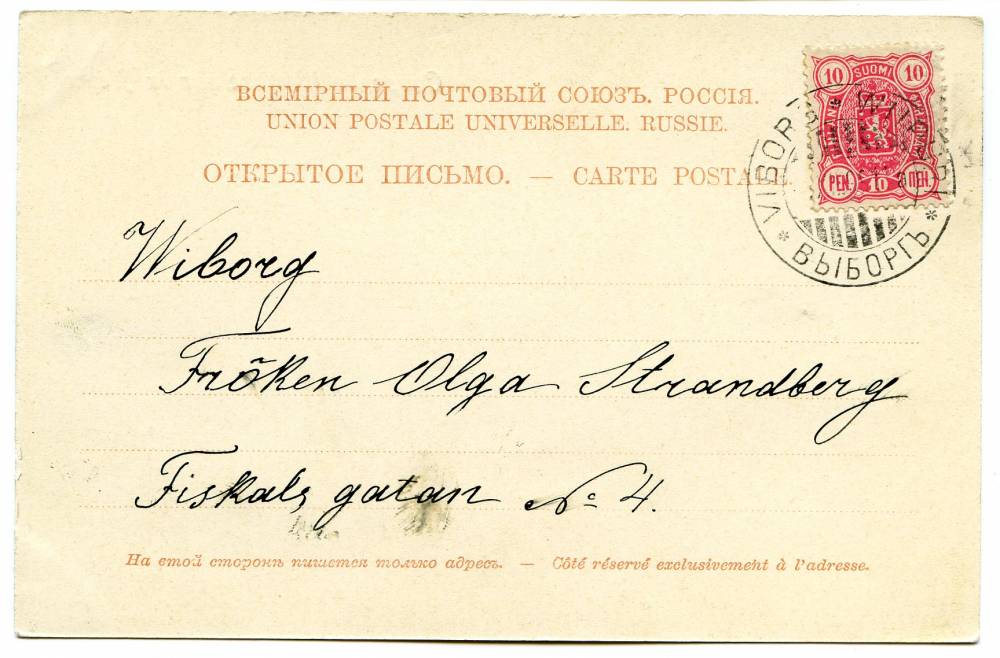 ВСЕМІРНЫЙ ПОЧТОВЫЙ СОЮЗЪ. РОССІЯ.
UNION POSTALE UNIVERSELLE. RUSSIE.
ОТКРЫТОЕ ПИСЬМО. — CARTE POSTALE.
10 SUOMI 10
PEN. 10 ПЕН.
VIBORG
ВЫБОРГЪ
Wiborg
Fröken Olga Strandberg
Fiskals gatan No 4.
На етой сторонѣ пишется только адресъ. — Côté réservé exclusivement à l'adresse.